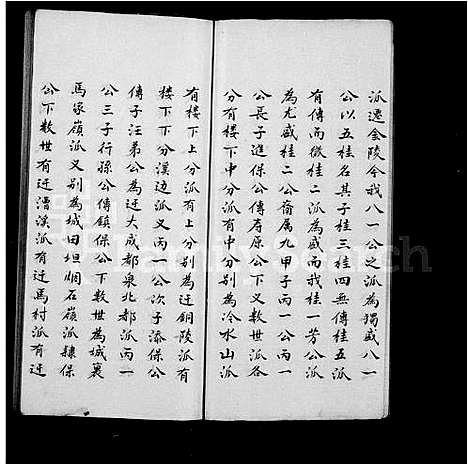 派遷金陵今我八一公之派為獨盛八一
公以五桂名其子桂三桂四無傳桂五派
有傳而微桂二派為盛而我桂一芳公派
為尤盛桂二公裔属九甲子丙一公丙一
公長子進保公傳寿原公下又数世派各
分有楼下中分派有中分别為冷水山派
有楼下上分派有上分别為迁銅陵派有
楼下下分漢边派又丙一公次子添保公
傳子汪弟公為迁大成都泉北都派丙一
公三子行孫公傳鎮保公下数世為城裏
馬家嶺派又别為城田坦烟石嶺派隸保
公下数世有迁漕溪派有迁馬村派有迁
FamilySearch